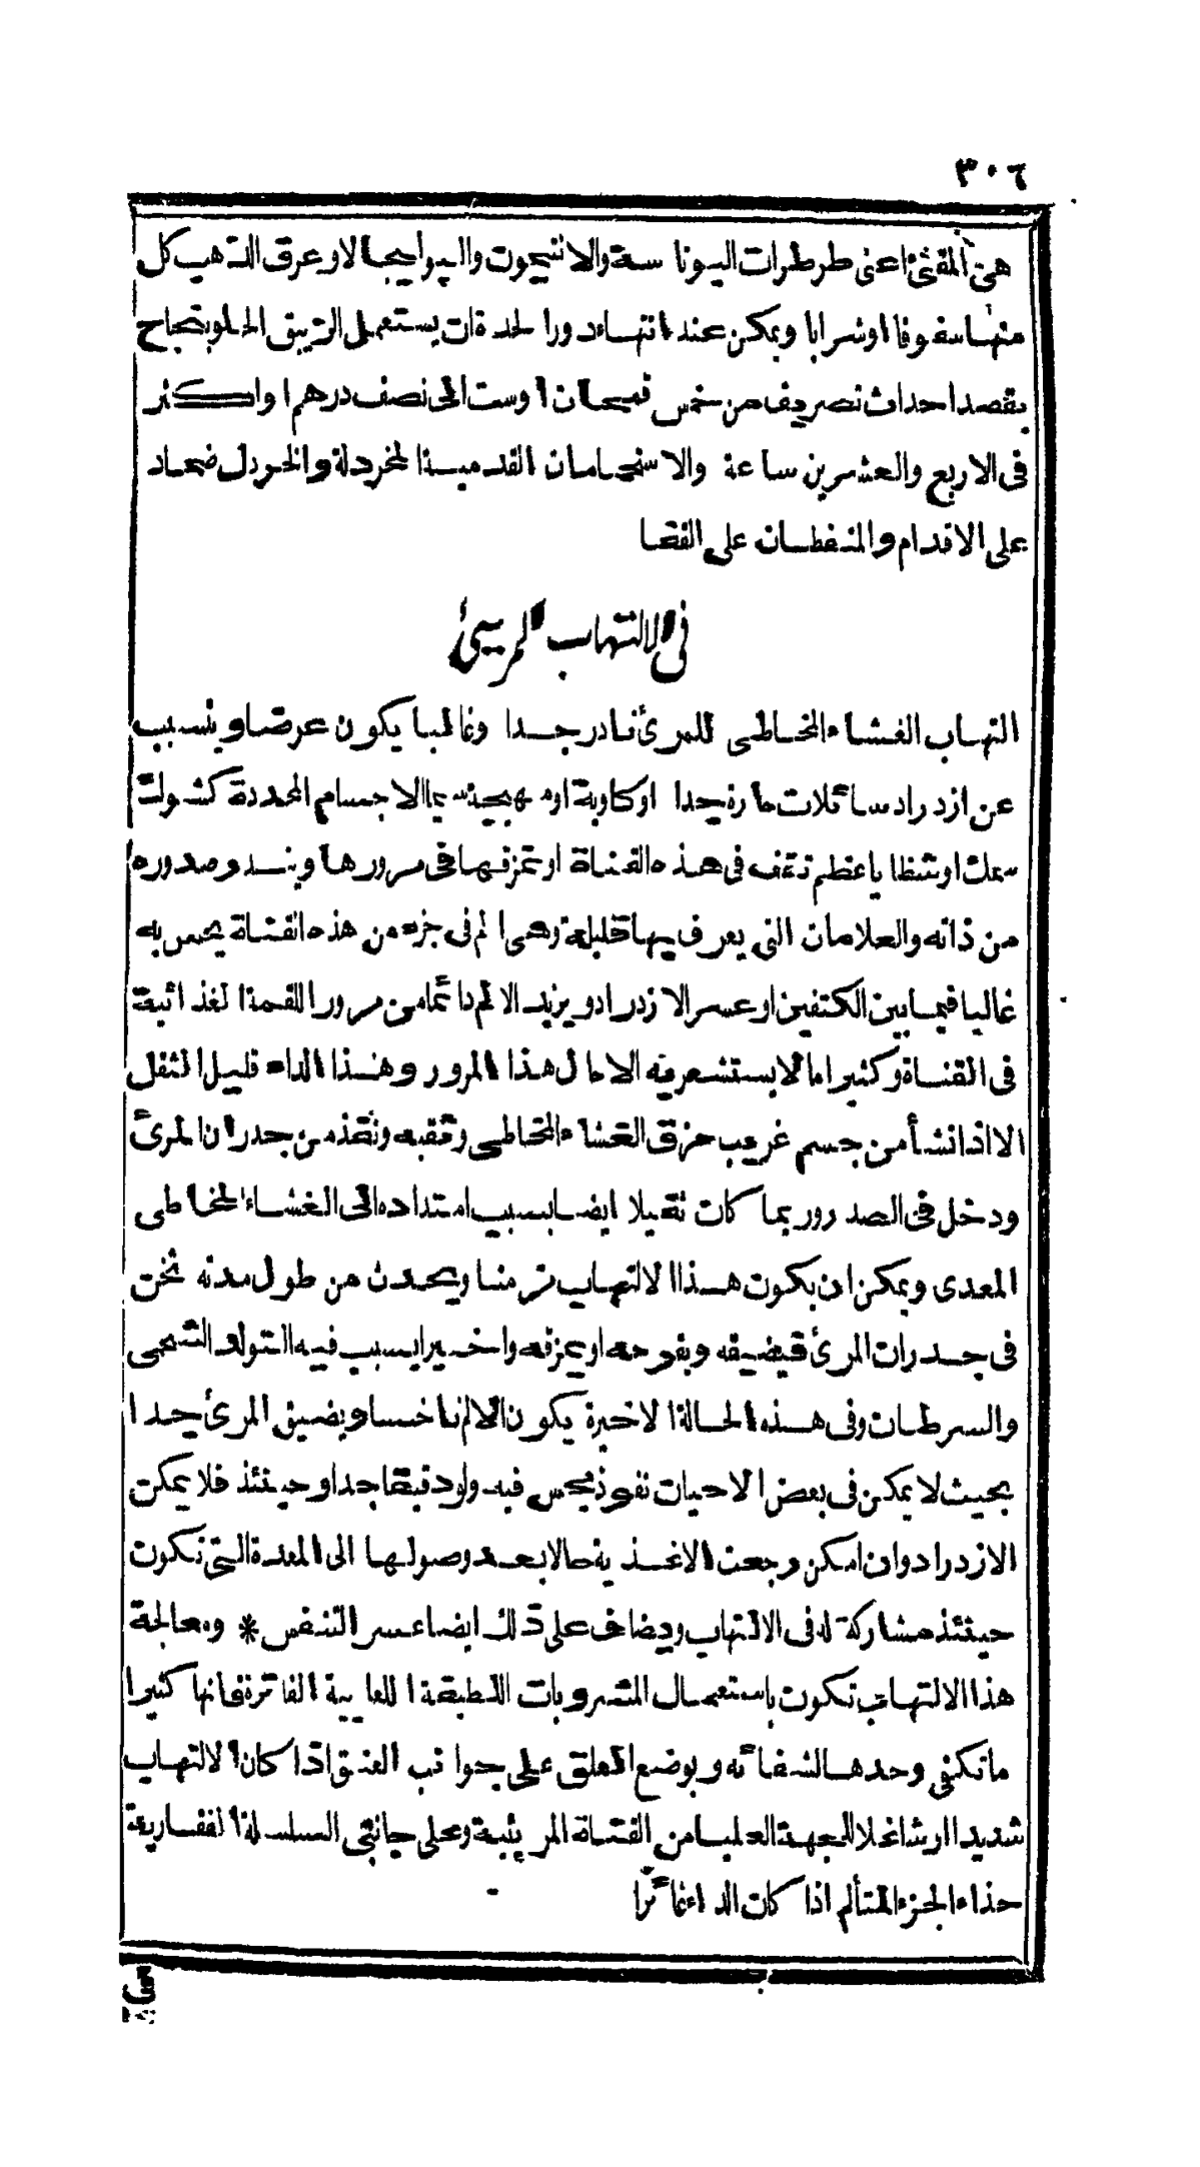 ٣٠٦
هي المقئ اعنى طرطرات البوتاسة والانتيمون والبوليجالا وعرق الذهب كل
منها سفوفا او شرابا ويمكن عند انتهاء دور الحدة ان يستعمل الزيبق الحلو بنجاح
بقصد احداث تصريف من خمس قمحات او ست الى نصف درهم او اكثر
فى الاربع والعشرين ساعة والاستحمامات القدمية المخردلة والخردل ضماد
على الاقدام والمنفطات على القفا
فى الالتهاب المريئى
التهاب الغشاء المخاطى للمرئ نادر جدا وغالبا يكون عرضا ويتسبب
عن ازدراد سائلات حارة جدا او كاوية او مهيجة سيما الاجسام المحددة كشوكة
سمك او شظايا عظم تقف فى هذه القناة او تمزقها فى مرورها ويندر صدوره
من ذاته والعلامات التى يعرف بها قليلة وهى الم فى جزء من هذه القناة يحس به
غالبا فيما بين الكتفين او عسر الازدراد ويزيد الالم دائما من مرور اللقمة الغذائية
فى القناة وكثيرا ما لا يستشعر به الا حال هذا المرور وهذا الداء قليل الثقل
الا اذا نشأ من جسم غريب خرق الغشاء المخاطى وثقبه ونفذ من جدران المرئ
ودخل فى الصدر وربما كان ثقيلا ايضا بسبب امتداده الى الغشاء المخاطى
المعدى ويمكن ان يكون هذا الالتهاب مزمنا ويحدث من طول مدته ثخن
فى جدران المرئ فيضيقه ويقرحه او يمزقه واخيرا يسبب فيه التولد الشحمى
والسرطان وفى هذه الحالة الاخيرة يكون الالم ناخسا ويضيق المرئ جدا
بحيث لا يمكن فى بعض الاحيان نفوذ مجس فيه ولو دقيقا جدا وحينئذ فلا يمكن
الازدراد وان امكن رجعت الاغذية حالا بعد وصولها الى المعدة التى تكون
حينئذ مشاركة له فى الالتهاب ويضاف على ذلك ايضا عسر التنفس * ومعالجة
هذا الالتهاب تكون باستعمال المشروبات اللطيفة اللعابية الفاترة فانها كثيرا
ما تكفى وحدها لشفائه وبوضع العلق على جوانب العنق اذا كان الالتهاب
شديدا او شاغلا للجهة العليا من القناة المريئية وعلى جانبى السلسلة الفقارية
حذاء الجزء المتألم اذا كان الداء غائرا